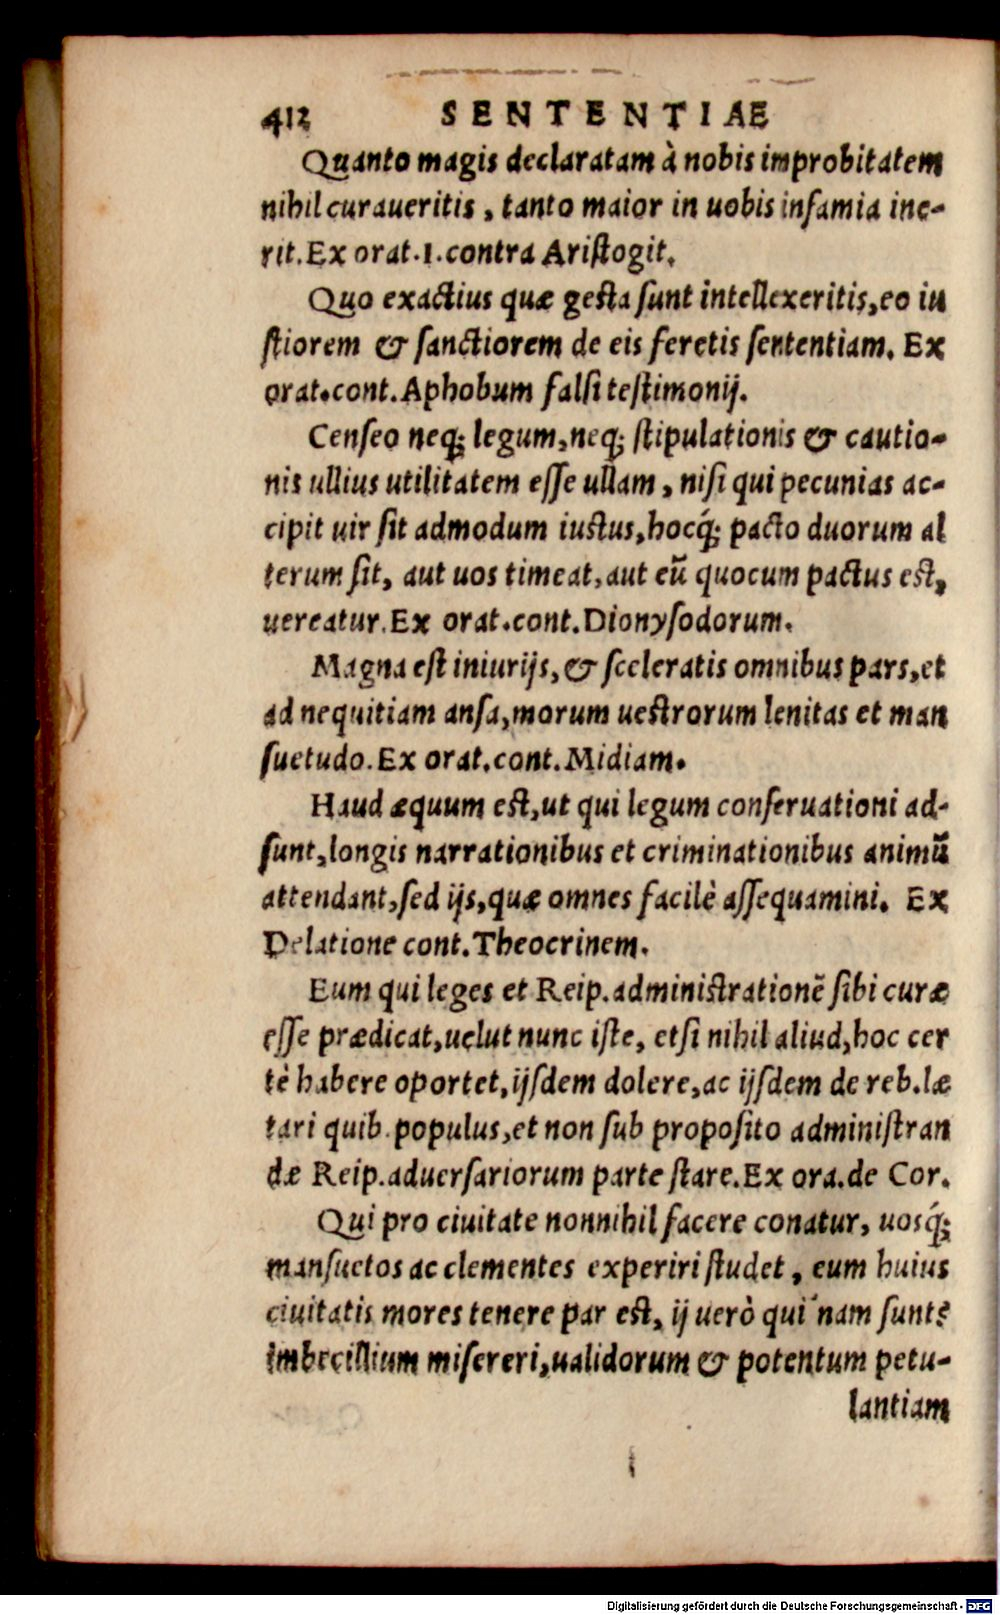 412 SENTENTIAE
Quanto magis declaratam à nobis improbitatem
nihil curaueritis, tanto maior in uobis infamia ine-
rit. Ex orat. 1. contra Aristogit.
Quo exactius quæ gesta sunt intellexeritis, eo iu
stiorem & sanctiorem de eis feretis sententiam. Ex
orat. cont. Aphobum falsi testimonij.
Censeo neq; legum, neq; stipulationis & cautio-
nis ullius utilitatem esse ullam, nisi qui pecunias ac-
cipit uir sit admodum iustus, hocq́; pacto duorum al
terum sit, aut uos timeat, aut eũ quocum pactus est,
uereatur. Ex orat. cont. Dionysodorum.
Magna est iniurijs, & sceleratis omnibus pars, et
ad nequitiam ansa, morum uestrorum lenitas et man
suetudo. Ex orat. cont. Midiam.
Haud æquum est, ut qui legum conseruationi ad-
sunt, longis narrationibus et criminationibus animũ
attendant, sed ijs, quæ omnes facilè assequamini. Ex
Delatione cont. Theocrinem.
Eum qui leges et Reip. administrationẽ sibi curæ
esse prædicat, uelut nunc iste, etsi nihil aliud, hoc cer
tè habere oportet, ijsdem dolere, ac ijsdem de reb. læ
tari quib. populus, et non sub proposito administran
dæ Reip. aduersariorum parte stare. Ex ora. de Cor.
Qui pro ciuitate nonnihil facere conatur, uosq́;
mansuetos ac clementes experiri studet, eum huius
ciuitatis mores tenere par est, ij uerò qui nam sunt?
Imbecillium misereri, ualidorum & potentum petu-
lantiam
Digitalisierung gefördert durch die Deutsche Forschungsgemeinschaft - DFG